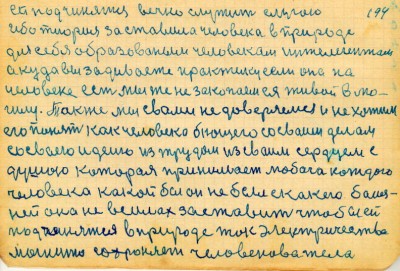 ей подчинятся вечно служит слугою 194
ибо теория заставила человека в природе
для себя образованым человекам интелегентам
а куда вы задиваете практику если она на
человеке есть мы же не закопаемся живой в мо-
гилу. Также мы с вами не доверяемся и не хотим
его понят как человека бающего со своим делам
со своею идеею из трудом из своим сердцем с
душою которая принимает любага каждого
человека какой бы он не был с какею балез-
ней она не в силах заставит чтобы ей
подчинятся в природе ток электричества
магнито сохроняет человека тела